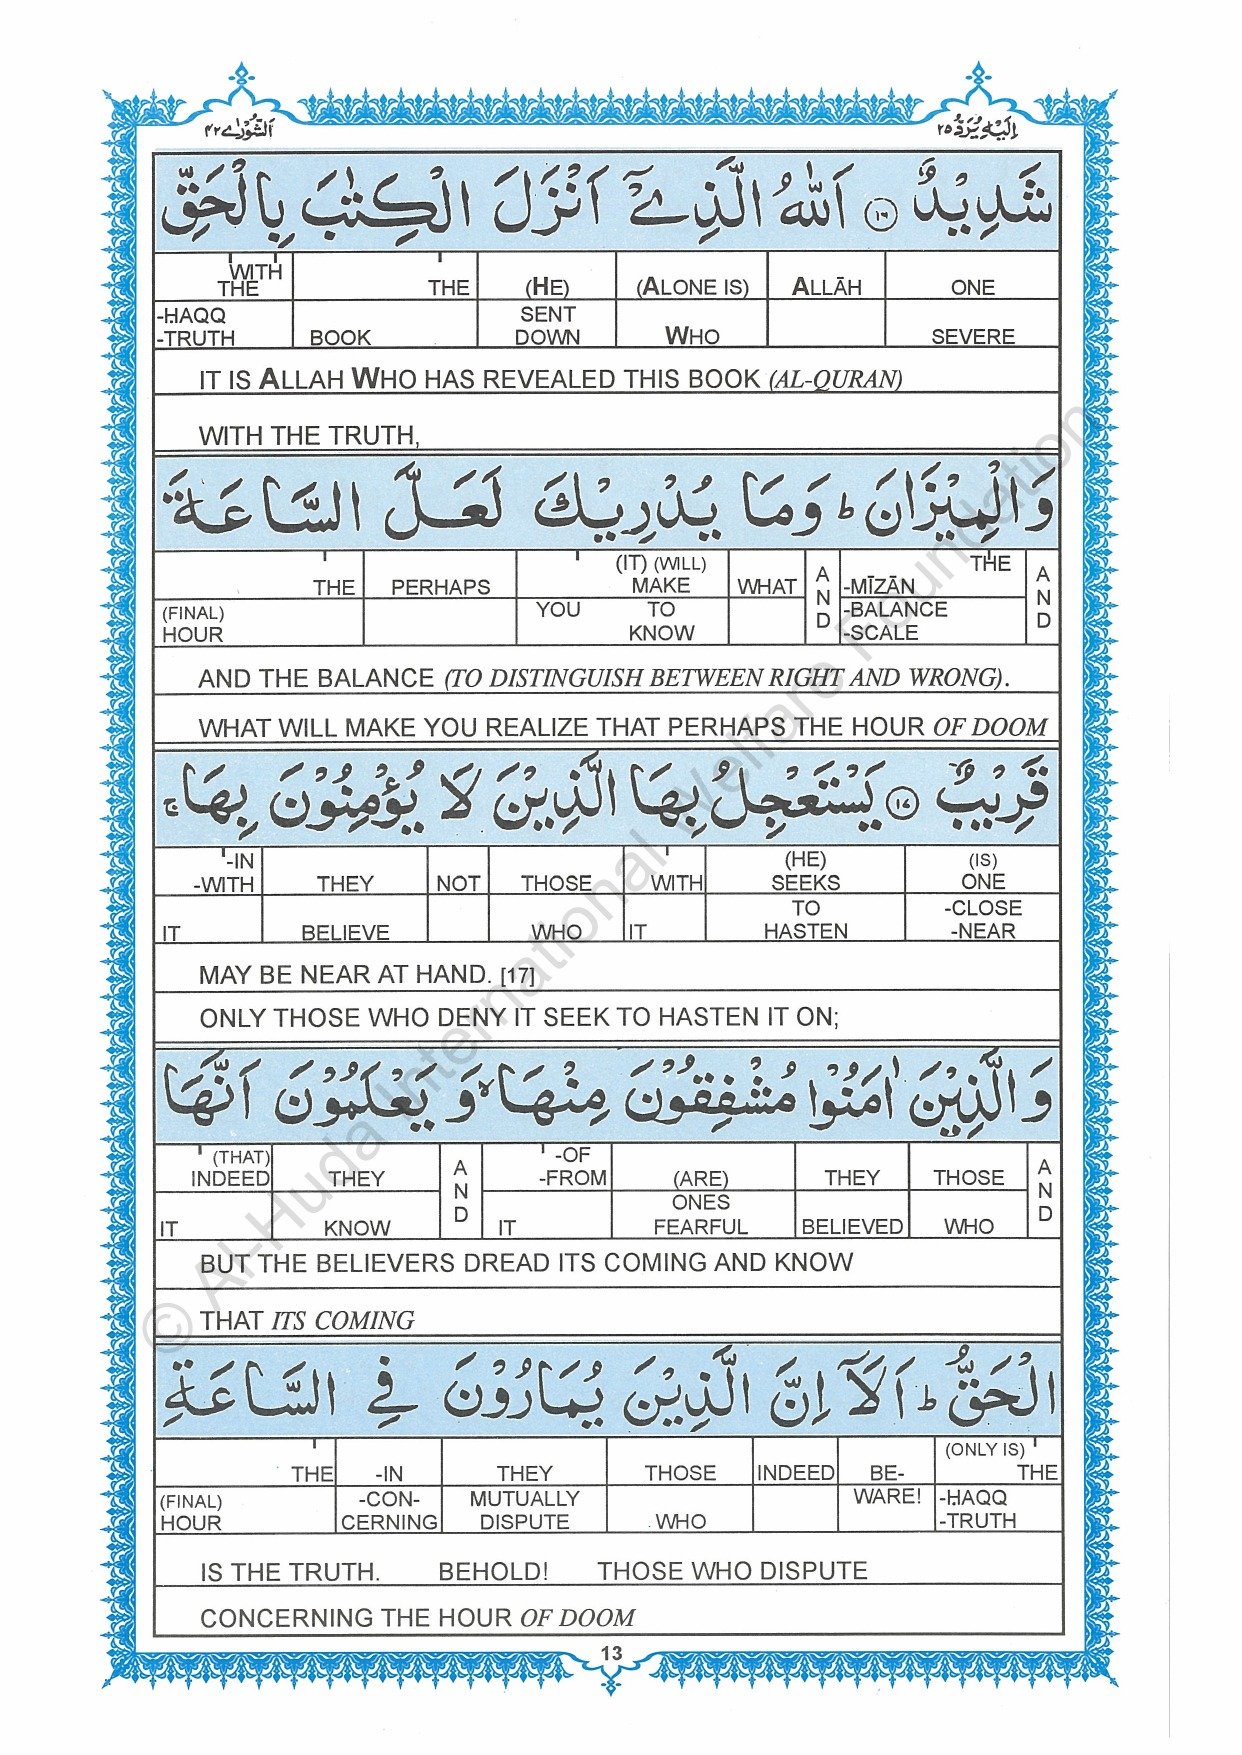 اَلشُّوْرٰى ٤٢
اِلَيْهِ يُرَدُّ ٢٥
شَدِيْدٌ ١٦ اَللّٰهُ الَّذِيْٓ اَنْزَلَ الْكِتٰبَ بِالْحَقِّ
WITH THE THE (HE) (ALONE IS) ALLĀH ONE
-ḤAQQ -TRUTH BOOK SENT DOWN WHO SEVERE
IT IS ALLAH WHO HAS REVEALED THIS BOOK (AL-QURAN)
WITH THE TRUTH,
وَالْمِيْزَانَ ؕ وَمَا يُدْرِيْكَ لَعَلَّ السَّاعَةَ
THE PERHAPS (IT) (WILL) MAKE WHAT AND THE -MĪZĀN AND
(FINAL) HOUR YOU TO KNOW -BALANCE -SCALE
AND THE BALANCE (TO DISTINGUISH BETWEEN RIGHT AND WRONG).
WHAT WILL MAKE YOU REALIZE THAT PERHAPS THE HOUR OF DOOM
قَرِيْبٌ ١٧ يَسْتَعْجِلُ بِهَا الَّذِيْنَ لَا يُؤْمِنُوْنَ بِهَا ۚ
-IN -WITH THEY NOT THOSE WITH (HE) SEEKS (IS) ONE
IT BELIEVE WHO IT TO HASTEN -CLOSE -NEAR
MAY BE NEAR AT HAND. [17]
ONLY THOSE WHO DENY IT SEEK TO HASTEN IT ON;
وَالَّذِيْنَ اٰمَنُوْا مُشْفِقُوْنَ مِنْهَا ۙ وَيَعْلَمُوْنَ اَنَّهَا
(THAT) INDEED THEY AND -OF -FROM (ARE) THEY THOSE AND
IT KNOW IT ONES FEARFUL BELIEVED WHO
BUT THE BELIEVERS DREAD ITS COMING AND KNOW
THAT ITS COMING
الْحَقُّ ؕ اَلَآ اِنَّ الَّذِيْنَ يُمَارُوْنَ فِي السَّاعَةِ
THE -IN THEY THOSE INDEED BE- (ONLY IS) THE
(FINAL) HOUR -CON- CERNING MUTUALLY DISPUTE WHO WARE! -ḤAQQ -TRUTH
IS THE TRUTH. BEHOLD! THOSE WHO DISPUTE
CONCERNING THE HOUR OF DOOM
13
© Al-Huda International Welfare Foundation